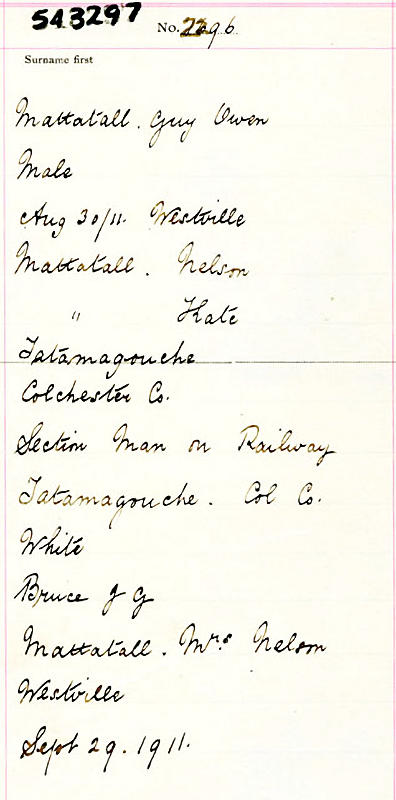 543297
No. 2296.
Surname first
Mattatall. Guy Owen
Male
Aug 30/11. Westville
Mattatall. Nelson
" Kate
Tatamagouche
Colchester Co.
Section Man on Railway
Tatamagouche. Col Co.
White
Bruce J G
Mattatall. Mrs. Nelson
Westville
Sept 29. 1911.